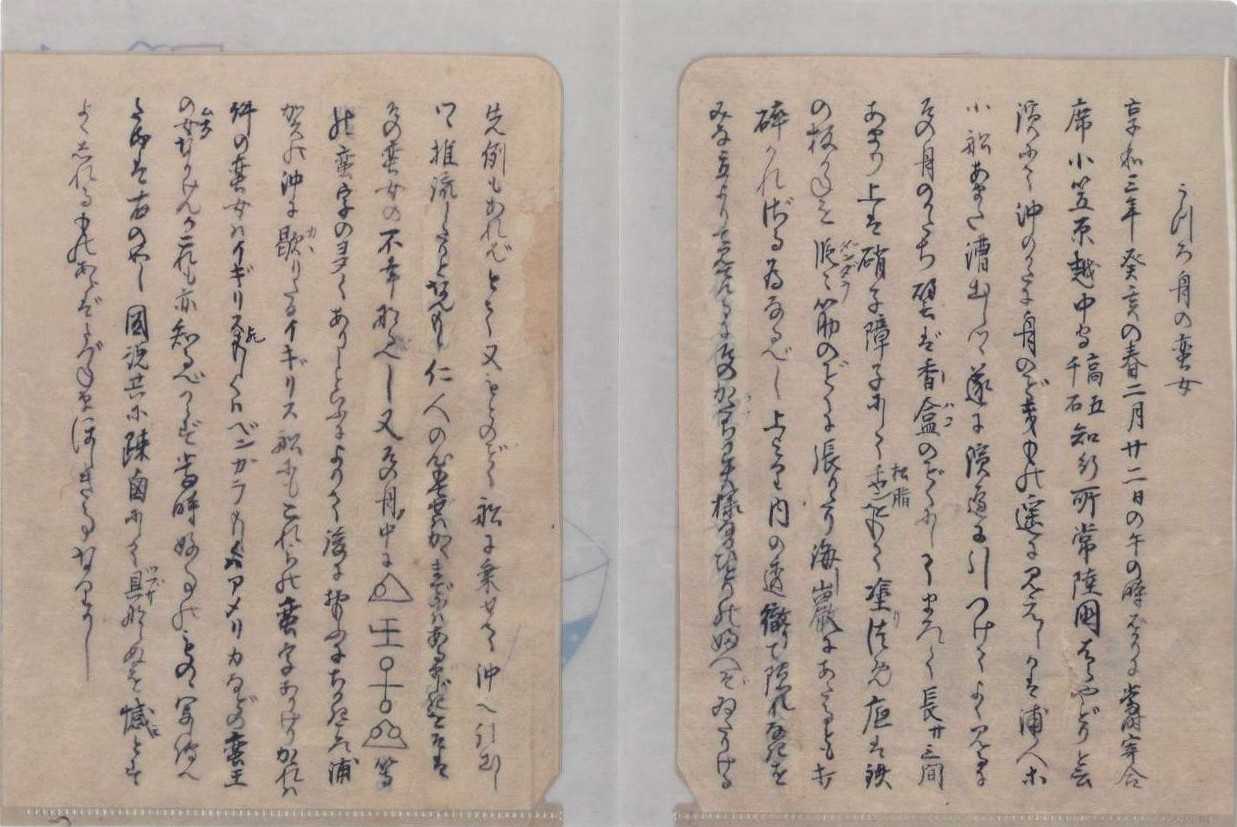 うつろ舟の蛮女
享和三年癸亥の春二月廿二日の午の時ばかりに當時寄合
席小笠原越中守高五千石知行所常陸國はらやどりと云
濱にて沖のかたに舟のごときもの遥に見えしかば浦人等
小船あまた漕出しつゝ遂に濱邊に引つけてよく見るに
その舟のかたち譬ば香盒のごとくにしてまろく長サ三間
あまり上は硝子障子にしてチヤン松脂をもて塗りつめ底は鉄
の板がねを段々筋のごとくに張たり海巌にあたるとも打
砕かれざる為なるべし上より内の透徹りて隠れなきを
みな立よりて見てけるにそのかたち異様なるひとりの婦人ぞゐたりける
先例もあればとて又もとのごとく船に乗せて沖へ引出し
つゝ推流したりとなんもし仁人の心もてせばかくまでにはあるまじきをそは
その蛮女の不幸なるべし又その舟の中に△王△△等
の蛮字のヲヲくありしといふによりて後におもふにちかきころ浦
賀の沖に歇りたるイギリス船にもこれらの蛮字ありけりかゝれば
件の蛮女ハイギリスかもしくハベンガラもしくハアメリカなどの蛮王
の女なりけんか是も亦知るべからず當時好事のものゝ写傳へ
たるは右の如し國説共に疎鹵にして具ならぬを憾とす
よくしれるものあらばたづねまほしき事なりかし